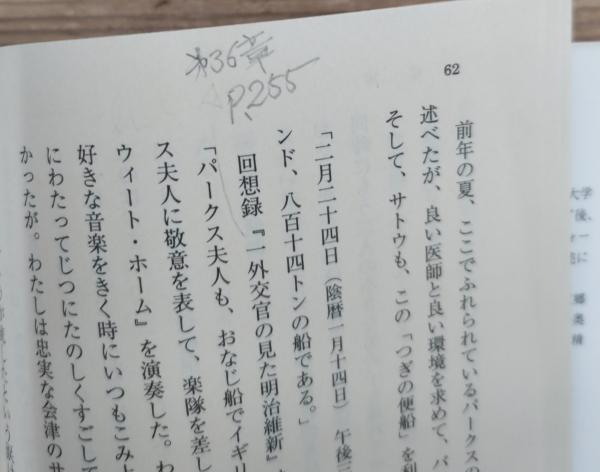 62
第36章
P.255
前年の夏、ここでふれられているパークスの
述べたが、良い医師と良い環境を求めて、パ
そして、サトウも、この「つぎの便船」を利
「二月二十四日（陰暦一月十四日）午後三
ンド、八百十四トンの船である。」
回想録『一外交官の見た明治維新』
「パークス夫人も、おなじ船でイギリ
ス夫人に敬意を表して、楽隊を差し
ウィート・ホーム』を演奏した。わ
好きな音楽をきく時にいつもこみ上
にわたってじつにたのしくすごして
かったが。わたしは忠実な会津のサ
大学